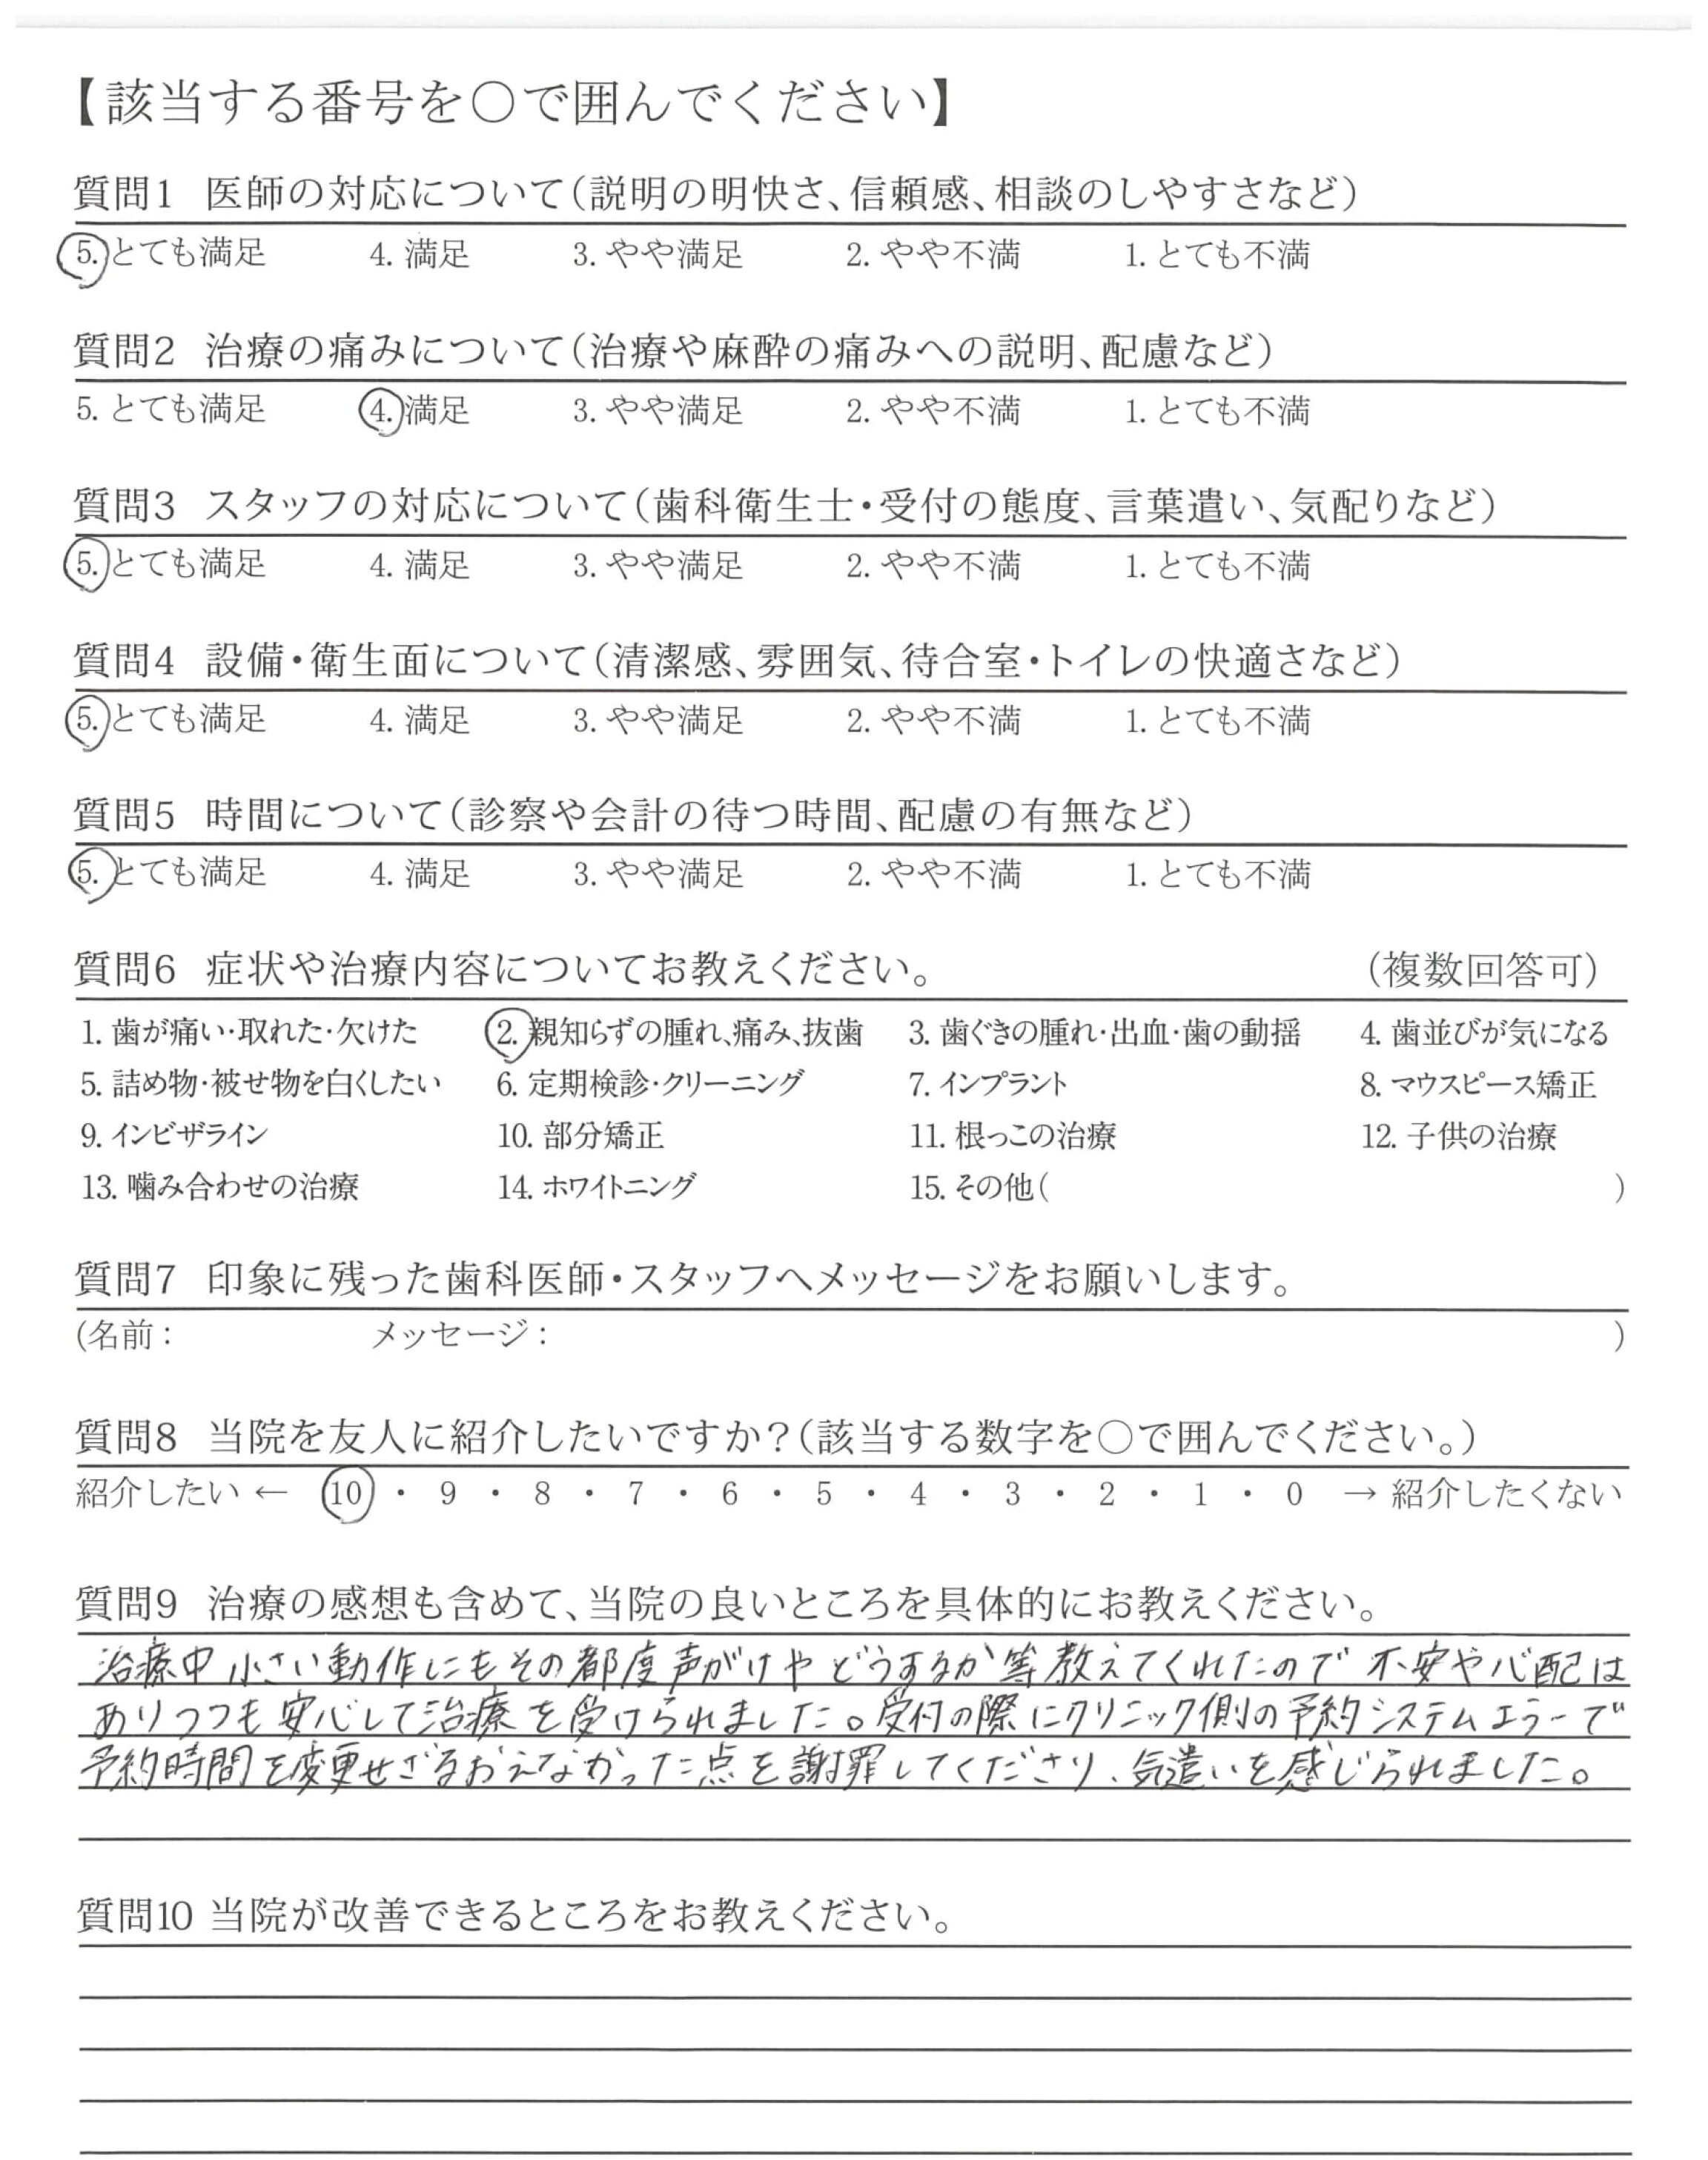 【該当する番号を〇で囲んでください】
質問1 医師の対応について(説明の明快さ、信頼感、相談のしやすさなど)
5. とても満足 4. 満足 3. やや満足 2. やや不満 1. とても不満
質問2 治療の痛みについて(治療や麻酔の痛みへの説明、配慮など)
5. とても満足 4. 満足 3. やや満足 2. やや不満 1. とても不満
質問3 スタッフの対応について(歯科衛生士・受付の態度、言葉遣い、気配りなど)
5. とても満足 4. 満足 3. やや満足 2. やや不満 1. とても不満
質問4 設備・衛生面について(清潔感、雰囲気、待合室・トイレの快適さなど)
5. とても満足 4. 満足 3. やや満足 2. やや不満 1. とても不満
質問5 時間について(診察や会計の待つ時間、配慮の有無など)
5. とても満足 4. 満足 3. やや満足 2. やや不満 1. とても不満
質問6 症状や治療内容についてお教えください。 (複数回答可)
1. 歯が痛い・取れた・欠けた 2. 親知らずの腫れ、痛み、抜歯 3. 歯ぐきの腫れ・出血・歯の動揺 4. 歯並びが気になる
5. 詰め物・被せ物を白くしたい 6. 定期検診・クリーニング 7. インプラント 8. マウスピース矯正
9. インビザライン 10. 部分矯正 11. 根っこの治療 12. 子供の治療
13. 噛み合わせの治療 14. ホワイトニング 15. その他( )
質問7 印象に残った歯科医師・スタッフへメッセージをお願いします。
(名前: メッセージ: )
質問8 当院を友人に紹介したいですか?(該当する数字を〇で囲んでください。)
紹介したい ← 10 ・ 9 ・ 8 ・ 7 ・ 6 ・ 5 ・ 4 ・ 3 ・ 2 ・ 1 ・ 0 → 紹介したくない
質問9 治療の感想も含めて、当院の良いところを具体的にお教えください。
治療中小さい動作にもその都度声がけやどうするか等教えてくれたので不安や心配は
ありつつも安心して治療を受けられました。受付の際にクリニック側の予約システムエラーで
予約時間を変更せざるおえなかった点を謝罪してくださり、気遣いを感じられました。
質問10 当院が改善できるところをお教えください。